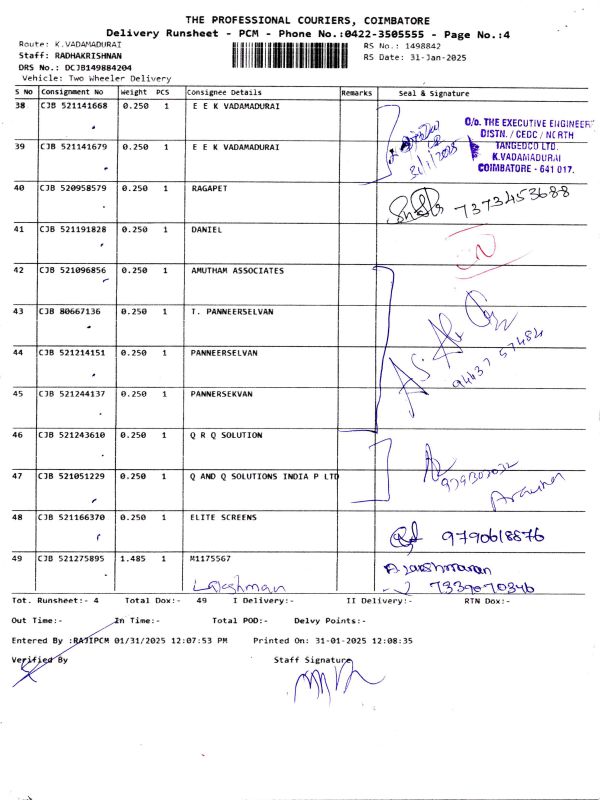 THE PROFESSIONAL COURIERS, COIMBATORE
Delivery Runsheet - PCM - Phone No.:0422-3505555 - Page No.:4
Route: K.VADAMADURAI RS No.: 1498842
Staff: RADHAKRISHNAN RS Date: 31-Jan-2025
DRS No.: DCJB149884204
Vehicle: Two Wheeler Delivery
S No Consignment No Weight PCS Consignee Details Remarks Seal & Signature
38 CJB 521141668 0.250 1 E E K VADAMADURAI
C/o. THE EXECUTIVE ENGINEER
DISTN. / CEDC / NORTH
TANGEDCO LTD.
K.VADAMADURAI
COIMBATORE - 641 017.
31/1/2025
39 CJB 521141679 0.250 1 E E K VADAMADURAI
40 CJB 520958579 0.250 1 RAGAPET 7373453688
41 CJB 521191828 0.250 1 DANIEL
42 CJB 521096856 0.250 1 AMUTHAM ASSOCIATES
43 CJB 80667136 0.250 1 T. PANNEERSELVAN
44 CJB 521214151 0.250 1 PANNEERSELVAN
94437 57484
45 CJB 521244137 0.250 1 PANNERSEKVAN
46 CJB 521243610 0.250 1 Q R Q SOLUTION
47 CJB 521051229 0.250 1 Q AND Q SOLUTIONS INDIA P LTD
48 CJB 521166370 0.250 1 ELITE SCREENS 9790618876
49 CJB 521275895 1.485 1 M1175567
Lakshman 7339070346
Tot. Runsheet:- 4 Total Dox:- 49 I Delivery:- II Delivery:- RTN Dox:-
Out Time:- In Time:- Total POD:- Delvy Points:-
Entered By :RAJIPCM 01/31/2025 12:07:53 PM Printed On: 31-01-2025 12:08:35
Verified By Staff Signature